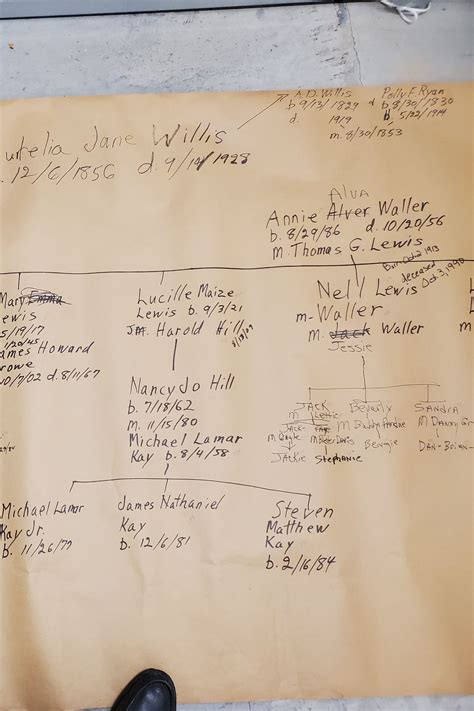 A.D. Willis
b. 9/13/1829
d. 1919
& Polly F. Ryan
b. 8/30/1830
5/22/1914
m. 8/30/1853
urelia Jane Willis
12/6/1856 d. 9/10/1928
Alva
Annie Alver Waller
b. 8/29/86 d. 10/20/56
m. Thomas G. Lewis
Mary Emma
ewis
5/19/17
1/20/45
ames Howard
rowe
10/7/02 d. 8/11/67
Lucille Maize
Lewis b. 9/3/21
Harold Hill
Nell Lewis
Born Oct 2 1913
deceased
Oct. 3, 1990
m- Waller
m. Jack Waller
Jessie
Nancy Jo Hill
b. 7/18/62
m. 11/15/80
Michael Lamar
Kay b. 8/4/58
JACK
M
Jack-
M
JAckie
Stephanie
Beverly
M
Bengie
SANDRA
M DANNY
DAN-
Michael Lamar
Kay Jr.
b. 11/26/77
James Nathaniel
Kay
b. 12/6/81
Steven
Matthew
Kay
b. 2/16/84